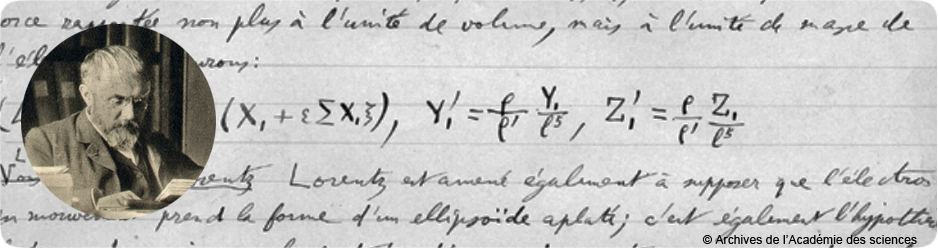 orce rapportée non plus à l'unité de volume, mais à l'unité de masse de
l'él rons:
(X₁ + εΣX₁ξ), Y₁' = ρ/ρ' Y₁/ℓ⁵, Z₁' = ρ/ρ' Z₁/ℓ⁵
Lorentz est amené également à supposer que l'électron
en mouvement prend la forme d'un ellipsoïde aplati; c'est également l'hypothèse
© Archives de l'Académie des sciences